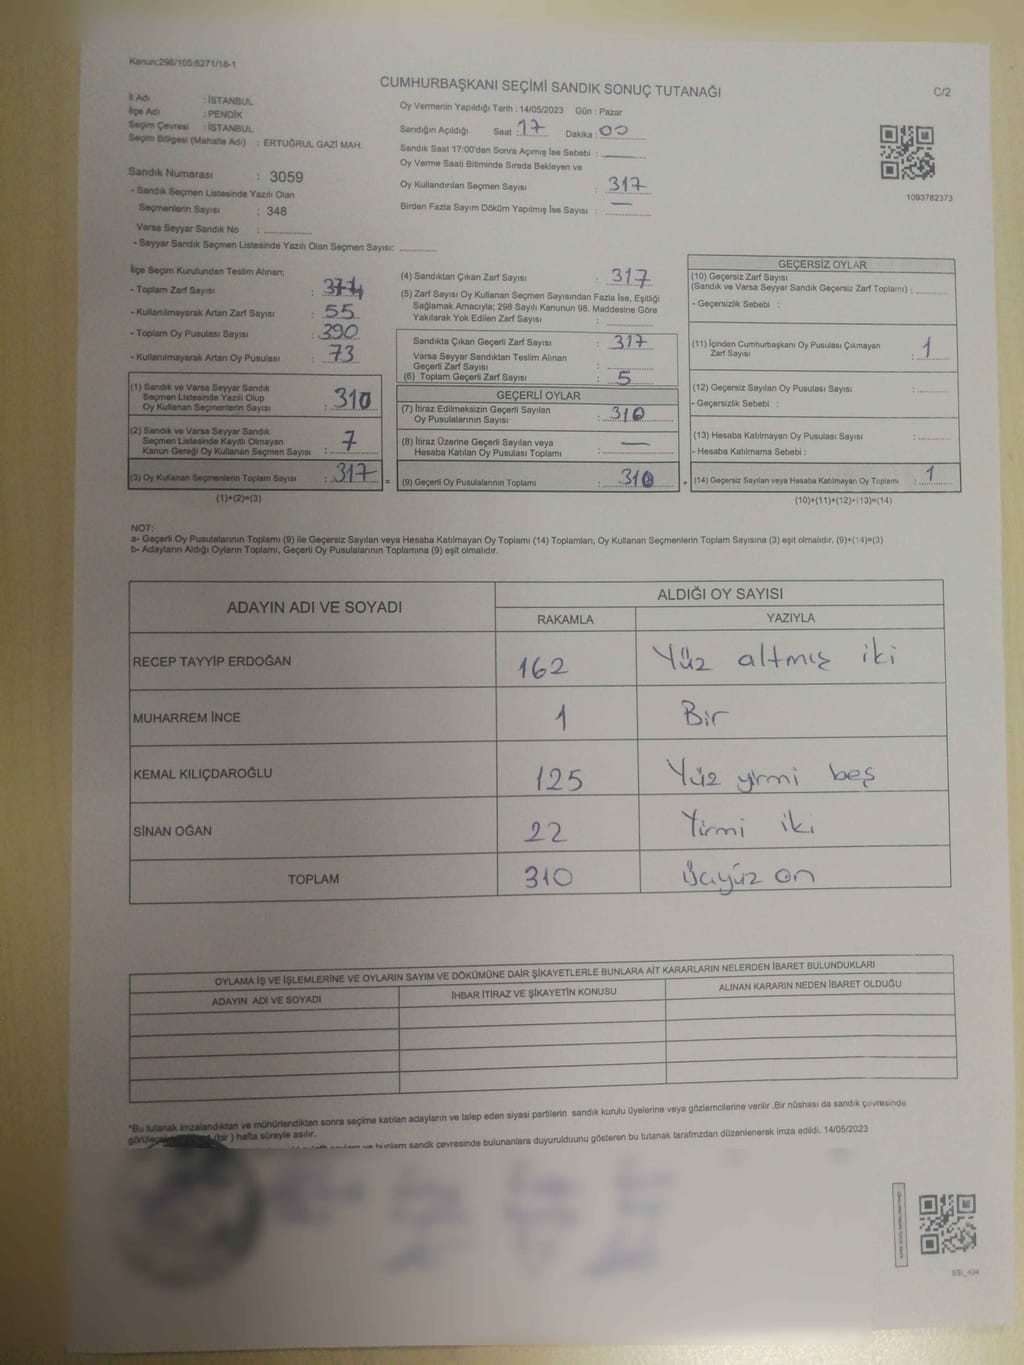 Kanun:298/105;6271/18-1
CUMHURBAŞKANI SEÇİMİ SANDIK SONUÇ TUTANAĞI
C/2
İl Adı : İSTANBUL
İlçe Adı : PENDİK
Seçim Çevresi : İSTANBUL
Seçim Bölgesi (Mahalle Adı) : ERTUĞRUL GAZİ MAH.
Sandık Numarası : 3059
- Sandık Seçmen Listesinde Yazılı Olan
Seçmenlerin Sayısı : 348
Varsa Seyyar Sandık No : ................
- Seyyar Sandık Seçmen Listesinde Yazılı Olan Seçmen Sayısı: ............
Oy Vermenin Yapıldığı Tarih : 14/05/2023 Gün : Pazar
Sandığın Açıldığı Saat : 17 Dakika : 00
Sandık Saat 17:00'den Sonra Açmış İse Sebebi :
Oy Verme Saati Bitiminde Sırada Bekleyen ve
Oy Kullandırılan Seçmen Sayısı : 317
Birden Fazla Sayım Döküm Yapılmış İse Sayısı : —
1093782373
İlçe Seçim Kurulundan Teslim Alınan;
- Toplam Zarf Sayısı :
- Kullanılmayarak Artan Zarf Sayısı : 55
- Toplam Oy Pusulası Sayısı : 390
- Kullanılmayarak Artan Oy Pusulası : 73
(1) Sandık ve Varsa Seyyar Sandık
Seçmen Listesinde Yazılı Olup
Oy Kullanan Seçmenlerin Sayısı : 310
(2) Sandık ve Varsa Seyyar Sandık
Seçmen Listesinde Kayıtlı Olmayan
Kanun Gereği Oy Kullanan Seçmen Sayısı : 7
(3) Oy Kullanan Seçmenlerin Toplam Sayısı : 317 =
(1)+(2)=(3)
(4) Sandıktan Çıkan Zarf Sayısı : 317
(5) Zarf Sayısı Oy Kullanan Seçmen Sayısından Fazla İse, Eşitliği
Sağlamak Amacıyla; 298 Sayılı Kanunun 98. Maddesine Göre
Yakılarak Yok Edilen Zarf Sayısı :
Sandıkta Çıkan Geçerli Zarf Sayısı : 317
Varsa Seyyar Sandıktan Teslim Alınan
Geçerli Zarf Sayısı :
(6) Toplam Geçerli Zarf Sayısı : 5
GEÇERLİ OYLAR
(7) İtiraz Edilmeksizin Geçerli Sayılan
Oy Pusulalarının Sayısı : 310
(8) İtiraz Üzerine Geçerli Sayılan veya
Hesaba Katılan Oy Pusulası Toplamı : —
(9) Geçerli Oy Pusulalarının Toplamı : 310 +
GEÇERSİZ OYLAR
(10) Geçersiz Zarf Sayısı
(Sandık ve Varsa Seyyar Sandık Geçersiz Zarf Toplamı) :
- Geçersizlik Sebebi :
(11) İçinden Cumhurbaşkanı Oy Pusulası Çıkmayan
Zarf Sayısı : 1
(12) Geçersiz Sayılan Oy Pusulası Sayısı :
- Geçersizlik Sebebi :
(13) Hesaba Katılmayan Oy Pusulası Sayısı :
- Hesaba Katılmama Sebebi :
(14) Geçersiz Sayılan veya Hesaba Katılmayan Oy Toplamı : 1
(10)+(11)+(12)+(13)=(14)
NOT:
a- Geçerli Oy Pusulalarının Toplamı (9) ile Geçersiz Sayılan veya Hesaba Katılmayan Oy Toplamı (14) Toplamları, Oy Kullanan Seçmenlerin Toplam Sayısına (3) eşit olmalıdır. (9)+(14)=(3)
b- Adayların Aldığı Oyların Toplamı, Geçerli Oy Pusulalarının Toplamına (9) eşit olmalıdır.
ADAYIN ADI VE SOYADI
ALDIĞI OY SAYISI
RAKAMLA YAZIYLA
RECEP TAYYİP ERDOĞAN 162 Yüz altmış iki
MUHARREM İNCE 1 Bir
KEMAL KILIÇDAROĞLU 125 Yüz yirmi beş
SİNAN OĞAN 22 Yirmi iki
TOPLAM 310 Üçyüz on
OYLAMA İŞ VE İŞLEMLERİNE VE OYLARIN SAYIM VE DÖKÜMÜNE DAİR ŞİKAYETLERLE BUNLARA AİT KARARLARIN NELERDEN İBARET BULUNDUKLARI
ADAYIN ADI VE SOYADI İHBAR İTİRAZ VE ŞİKAYETİN KONUSU ALINAN KARARIN NEDEN İBARET OLDUĞU
*Bu tutanak imzalandıktan ve mühürlendikten sonra seçime katılan adayların ve talep eden siyasi partilerin sandık kurulu üyelerine veya gözlemcilerine verilir .Bir nüshası da sandık çevresinde
(bir ) hafta süreyle asılır.
sandk çevresinde bulunanlara duyurulduunu gösteren bu tutanak tarafmzdan düzenlenerek imza edildi. 14/05/2023